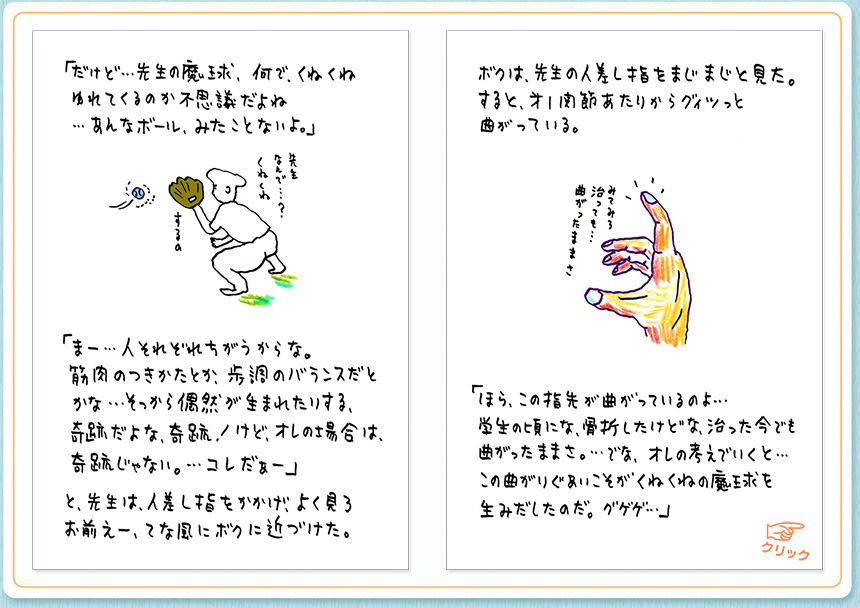 「だけど…先生の魔球、何で、くねくね
ゆれてくるのか不思議だよね
…あんなボール、みたことないよ。」
先生
なんで…?
くねくね
するの
「まー…人それぞれちがうからな。
筋肉のつきかたとか、歩調のバランスだと
かな…そっから偶然が生まれたりする、
奇跡だよな、奇跡!けど、オレの場合は、
奇跡じゃない。…コレだぁー」
と、先生は、人差し指をかかげ、よく見ろ
お前えー、てな風にボクに近づけた。
ボクは、先生の人差し指をまじまじと見た。
すると、オ1関節あたりからグイッっと
曲がっている。
みてみろ
治っても…
曲がったままさ
「ほら、この指先が曲がっているのよ…
学生の頃にな、骨折したけどな、治った今でも
曲がったままさ。…でな、オレの考えでいくと…
この曲がりぐあいこそがくねくねの魔球を
生みだしたのだ。グゲゲ…」
クリック